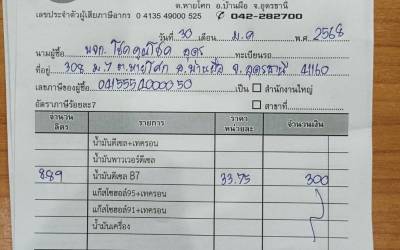 ต.หายโศก อ.บ้านผือ จ.อุดรธานี
เลขประจำตัวผู้เสียภาษีอากร 0 4135 49000 525 042-282700
วันที่ 30 เดือน ม.ค พ.ศ. 2568
นามผู้ซื้อ หจก. โชคคูณโชค อุดร ทะเบียนรถ
ที่อยู่ 308 ม.7 ต.หายโศก อ.บ้านผือ จ.อุดรธานี 41160
เลขภาษีของผู้ซื้อ 0415554000050 เป็น สำนักงานใหญ่
อัตราภาษีร้อยละ7 สาขาที่
จำนวนลิตร รายการ ราคาหน่วยละ จำนวนเงิน
น้ำมันดีเซล+เทครอน
น้ำมันพาวเวอร์ดีเซล
8.89 น้ำมันดีเซล B7 33.75 300
แก๊สโซฮอล์95+เทครอน
แก๊สโซฮอล์91+เทครอน
น้ำมันเครื่อง